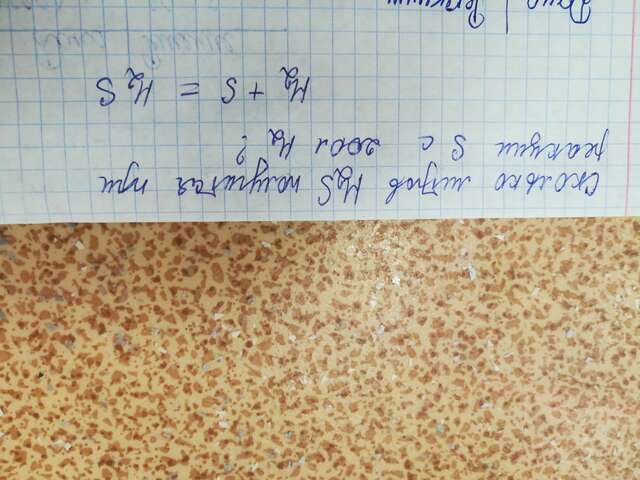 Сколько литров H₂S получится при
реакции S с 200л H₂ ?
H₂ + S = H₂S